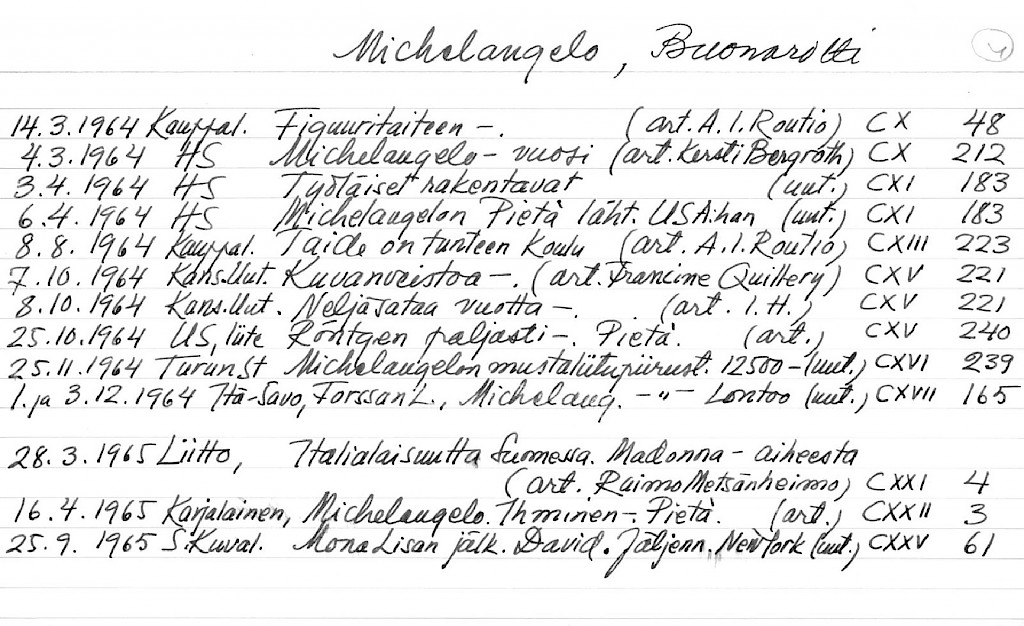 Michelangelo, Buonarotti 4
14.3.1964 Kauppal. Figuuritaiteen –. (art. A.I. Routio) CX 48
4.3.1964 HS Michelangelo – vuosi (art. Kersti Bergroth) CX 212
3.4.1964 HS Työläiset rakentavat (uut.) CXI 183
6.4.1964 HS Michelangelon Pietà läht. USA:han (uut.) CXI 183
8.8.1964 Kauppal. Taide on tunteen koulu (art. A.I. Routio) CXIII 223
7.10.1964 Kans.Uut. Kuvanveistoa –. (art. Francine Quillery) CXV 221
8.10.1964 Kans.Uut. Neljäsataa vuotta –. (art. I.H.) CXV 221
25.10.1964 US, liite Röntgen paljasti –. Pietà. (art.) CXV 240
25.11.1964 Turun St Michelangelon mustaliitupiirust. 12500 – (uut.) CXVI 239
1. ja 3.12.1964 Itä-Savo, Forssan L., Michelang. –"– Lontoo (uut.) CXVII 165
28.3.1965 Liitto, Italialaisuutta Suomessa. Madonna – aiheesta
(art. Raimo Metsänheimo) CXXI 4
16.4.1965 Karjalainen, Michelangelo. Ihminen –. Pietà. (art.) CXXII 3
25.9.1965 S.Kuval. Mona Lisan jälk. David. Jäljenn. New York (uut.) CXXV 61